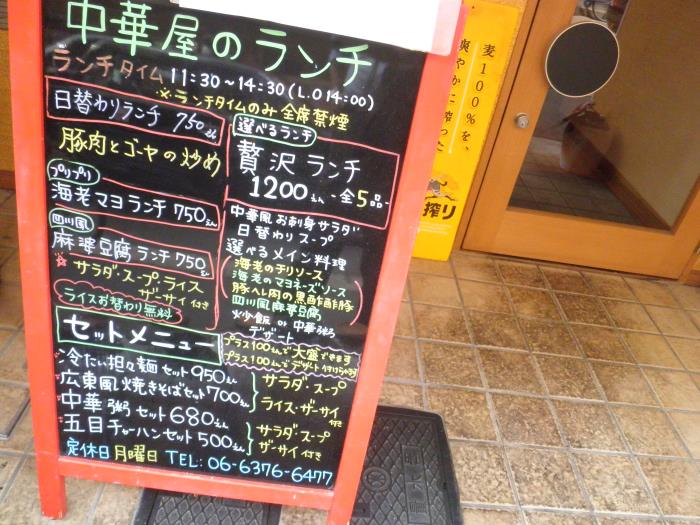 中華屋のランチ
ランチタイム 11:30～14:30(L.O 14:00)
※ランチタイムのみ全席禁煙
日替わりランチ 750えん
豚肉とゴーヤの炒め
プリプリ
海老マヨランチ 750えん
四川風
麻婆豆腐ランチ 750えん
☆サラダ・スープライス
ザーサイ付き
ライスお替わり無料♪
選べるランチ
贅沢ランチ
1200えん -全5品-
中華風お刺身サラダ
日替わりスープ
選べるメイン料理
海老のチリソース
海老のマヨネーズソース
豚ヘレ肉の黒酢酢豚
四川風麻婆豆腐
炒飯 or 中華粥
デザート
プラス100えんで大盛できます
プラス100えんでデザート付けられます
セットメニュー
冷たい担々麺セット 950えん
広東風焼きそばセット 700えん
サラダ・スープ
ライス・ザーサイ付き
中華粥セット 680えん
五目チャーハンセット 500えん
サラダ・スープ
ザーサイ付き
定休日 月曜日 TEL: 06-6376-6477
麦100%を、
爽やかに搾った
搾り